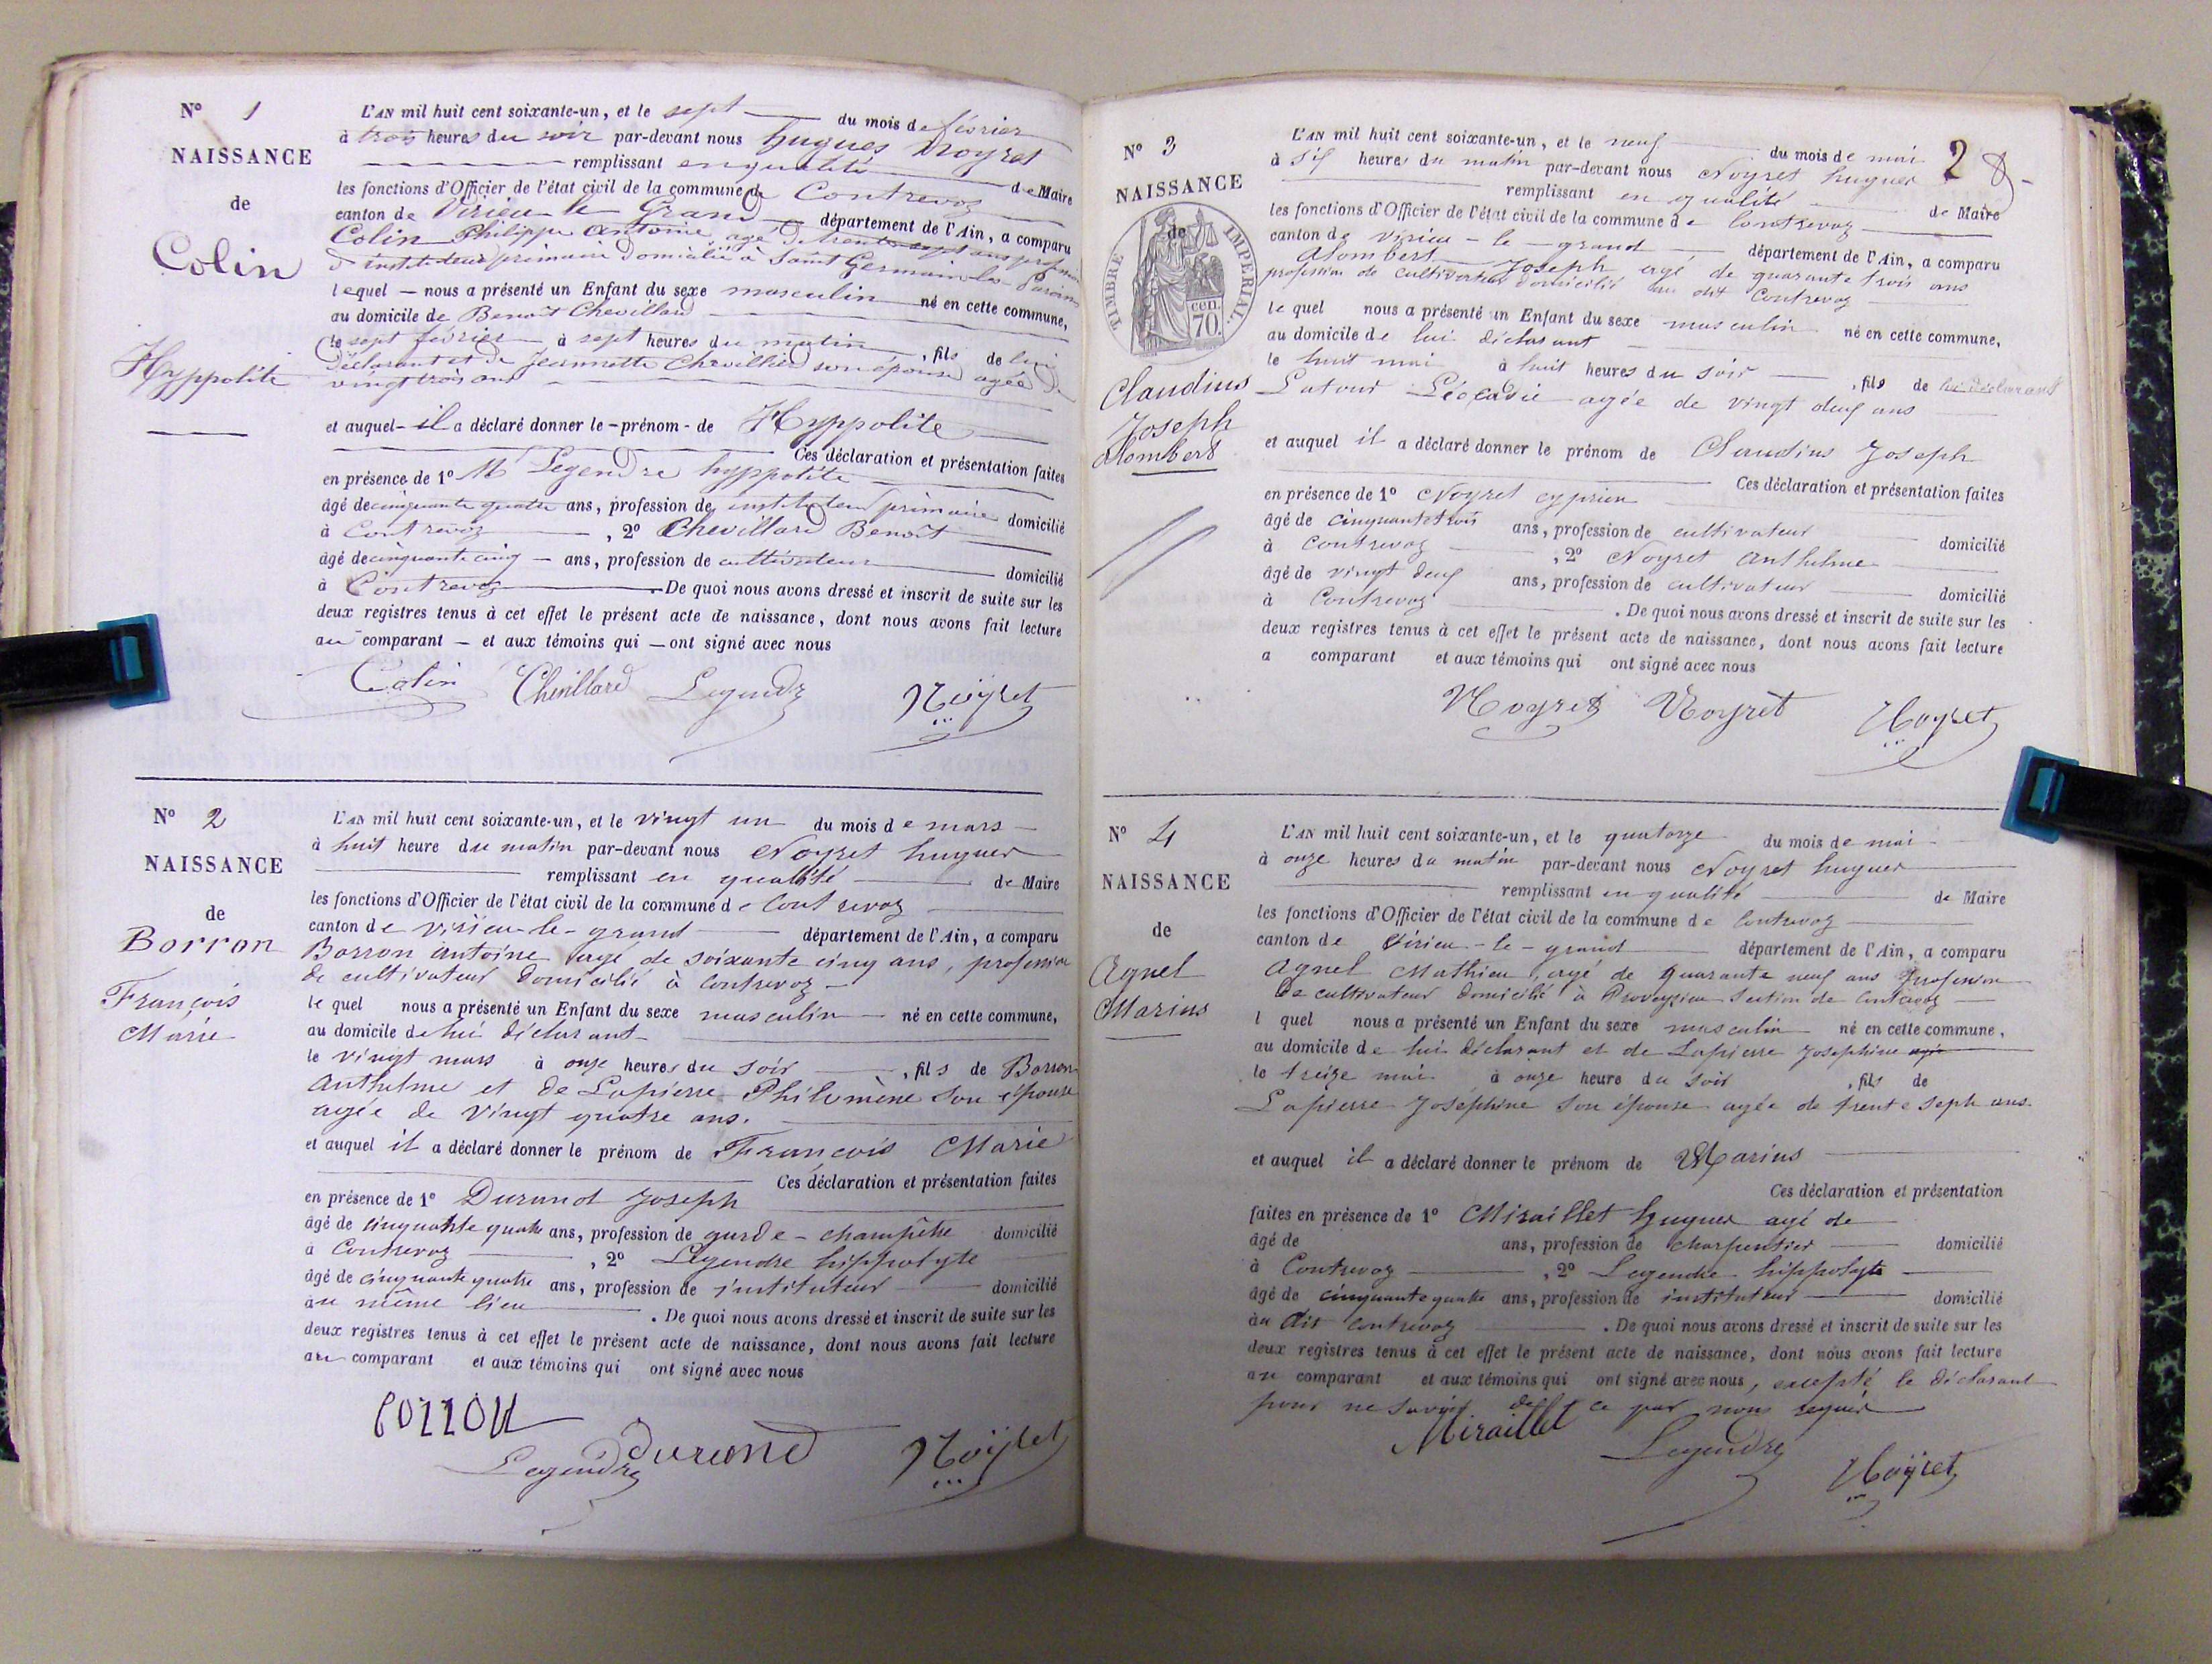 N° 1
NAISSANCE
de
Colin
Hyppolite
L'AN mil huit cent soixante-un, et le sept du mois de février
à trois heures du soir par-devant nous hugues Noyret
remplissant en qualité de Maire
les fonctions d'Officier de l'état civil de la commune de Contrevoz
canton de Virieu le Grand département de l'Ain, a comparu
Colin Philippe Antoine agé de trente sept ans profession
d'instituteur primaire domicilié à Saint Germain les Paroisses
lequel nous a présenté un Enfant du sexe masculin né en cette commune,
au domicile de Benoit Chevillard
le sept février à sept heures du matin, fils de lui
déclarant et de Jeannette Chevillard son épouse agée de
vingt trois ans
et auquel il a déclaré donner le prénom de Hyppolite
Ces déclaration et présentation faites
en présence de 1° Mr Legendre hyppolite
âgé de cinquante quatre ans, profession de instituteur primaire domicilié
à Contrevoz, 2° Chevillard Benoit
âgé de cinquante cinq ans, profession de cultivateur domicilié
à Contrevoz. De quoi nous avons dressé et inscrit de suite sur les
deux registres tenus à cet effet le présent acte de naissance, dont nous avons fait lecture
au comparant et aux témoins qui ont signé avec nous
Colin Chevillard Legendre Noyret
N° 2
NAISSANCE
de
Borron
François
Marie
L'AN mil huit cent soixante-un, et le vingt un du mois de mars
à huit heure du matin par-devant nous Noyret hugues
remplissant en qualité de Maire
les fonctions d'Officier de l'état civil de la commune de Contrevoz
canton de virieu-le-grand département de l'Ain, a comparu
Borron Antoine agé de soixante cinq ans, profession
de cultivateur domicilié à Contrevoz
lequel nous a présenté un Enfant du sexe masculin né en cette commune,
au domicile de lui déclarant
le vingt mars à onze heures du soir, fils de Borron
Anthelme et de Lapierre Philomène son épouse
agée de vingt quatre ans.
et auquel il a déclaré donner le prénom de François Marie
Ces déclaration et présentation faites
en présence de 1° Durand Joseph
âgé de cinquante quatre ans, profession de garde-champêtre domicilié
à Contrevoz, 2° Legendre hippolyte
âgé de cinquante quatre ans, profession de instituteur domicilié
au même lieu. De quoi nous avons dressé et inscrit de suite sur les
deux registres tenus à cet effet le présent acte de naissance, dont nous avons fait lecture
au comparant et aux témoins qui ont signé avec nous
borron
Legendre durand Noyret
2
N° 3
NAISSANCE
de
TIMBRE IMPERIAL
70 cen.
Claudius
Joseph
Alombert
L'AN mil huit cent soixante-un, et le neuf du mois de mai
à six heures du matin par-devant nous Noyret hugues
remplissant en qualité de Maire
les fonctions d'Officier de l'état civil de la commune de Contrevoz
canton de virieu-le-grand département de l'Ain, a comparu
Alombert Joseph agé de quarante trois ans
profession de cultivateur domicilié au dit Contrevoz
lequel nous a présenté un Enfant du sexe masculin né en cette commune,
au domicile de lui déclarant
le huit mai à huit heures du soir, fils de lui déclarant
Latour Léocadie agée de vingt deux ans
et auquel il a déclaré donner le prénom de Claudius Joseph
Ces déclaration et présentation faites
en présence de 1° Noyret cyprien
âgé de cinquante trois ans, profession de cultivateur domicilié
à Contrevoz, 2° Noyret Anthelme
âgé de vingt deux ans, profession de cultivateur domicilié
à Contrevoz. De quoi nous avons dressé et inscrit de suite sur les
deux registres tenus à cet effet le présent acte de naissance, dont nous avons fait lecture
a comparant et aux témoins qui ont signé avec nous
Noyret Noyret Noyret
N° 4
NAISSANCE
de
Agnel
Marius
L'AN mil huit cent soixante-un, et le quatorze du mois de mai
à onze heures du matin par-devant nous Noyret hugues
remplissant en qualité de Maire
les fonctions d'Officier de l'état civil de la commune de Contrevoz
canton de Virieu-le-grand département de l'Ain, a comparu
Agnel Mathieu, agé de quarante neuf ans profession
de cultivateur domicilié à Proveysieu section de Contrevoz
l quel nous a présenté un Enfant du sexe masculin né en cette commune,
au domicile de lui déclarant et de Lapierre Josephine agée
le treize mai à onze heure du soir, fils de
Lapierre Josephine son épouse agée de trente sept ans.
et auquel il a déclaré donner le prénom de Marius
Ces déclaration et présentation
faites en présence de 1° Miraillet hugues agé de
âgé de ans, profession de charpentier domicilié
à Contrevoz, 2° Legendre hippolyte
âgé de cinquante quatre ans, profession de instituteur domicilié
au dit Contrevoz. De quoi nous avons dressé et inscrit de suite sur les
deux registres tenus à cet effet le présent acte de naissance, dont nous avons fait lecture
au comparant et aux témoins qui ont signé avec nous, excepté le déclarant
pour ne savoir de ce par nous requis
Miraillet Legendre Noyret